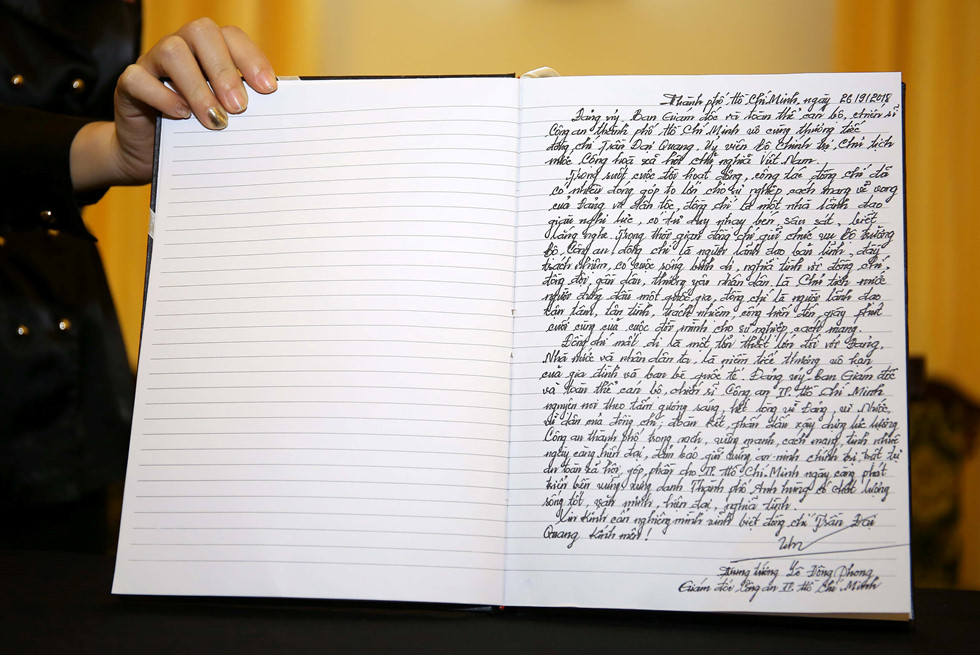 Thành phố Hồ Chí Minh, ngày 26/9/2018
Đảng ủy, Ban Giám đốc và toàn thể cán bộ, chiến sĩ
Công an thành phố Hồ Chí Minh vô cùng thương tiếc
đồng chí Trần Đại Quang, Ủy viên Bộ Chính trị, Chủ tịch
nước Cộng hòa xã hội chủ nghĩa Việt Nam.
Trong suốt cuộc đời hoạt động, công tác đồng chí đã
có nhiều đóng góp to lớn cho sự nghiệp cách mạng vẻ vang
của Đảng và dân tộc, đồng chí là một nhà lãnh đạo
giàu nghị lực, có tư duy nhạy bén sâu sát, biết
lắng nghe. Trong thời gian đồng chí giữ chức vụ Bộ trưởng
Bộ Công an, đồng chí là người lãnh đạo bản lĩnh, đầy
trách nhiệm, có cuộc sống bình dị, nghĩa tình với đồng chí,
đồng đội, gần dân, thương yêu nhân dân. Là Chủ tịch nước
người đứng đầu một quốc gia, đồng chí là người lãnh đạo
tận tâm, tận tình, trách nhiệm, cống hiến đến giây phút
cuối cùng của cuộc đời mình cho sự nghiệp cách mạng.
Đồng chí mất đi là một tổn thất lớn đối với Đảng,
Nhà nước và nhân dân ta, là niềm tiếc thương vô hạn
của gia đình và bạn bè quốc tế. Đảng ủy, Ban Giám đốc
và toàn thể cán bộ, chiến sĩ Công an TP. Hồ Chí Minh
nguyện noi theo tấm gương sáng, hết lòng vì Đảng, vì Nước,
vì dân của đồng chí, đoàn kết, phấn đấu xây dựng lực lượng
Công an thành phố trong sạch, vững mạnh, cách mạng, tinh nhuệ
ngày càng hiện đại, đảm bảo giữ vững an ninh chính trị, trật tự
an toàn xã hội, góp phần cho TP. Hồ Chí Minh ngày càng phát
triển bền vững, xứng danh Thành phố Anh hùng, có chất lượng
sống tốt, văn minh, hiện đại, nghĩa tình.
Xin kính cẩn nghiêng mình vĩnh biệt đồng chí Trần Đại
Quang kính mến!
Trung tướng Lê Đông Phong
Giám đốc Công an TP. Hồ Chí Minh